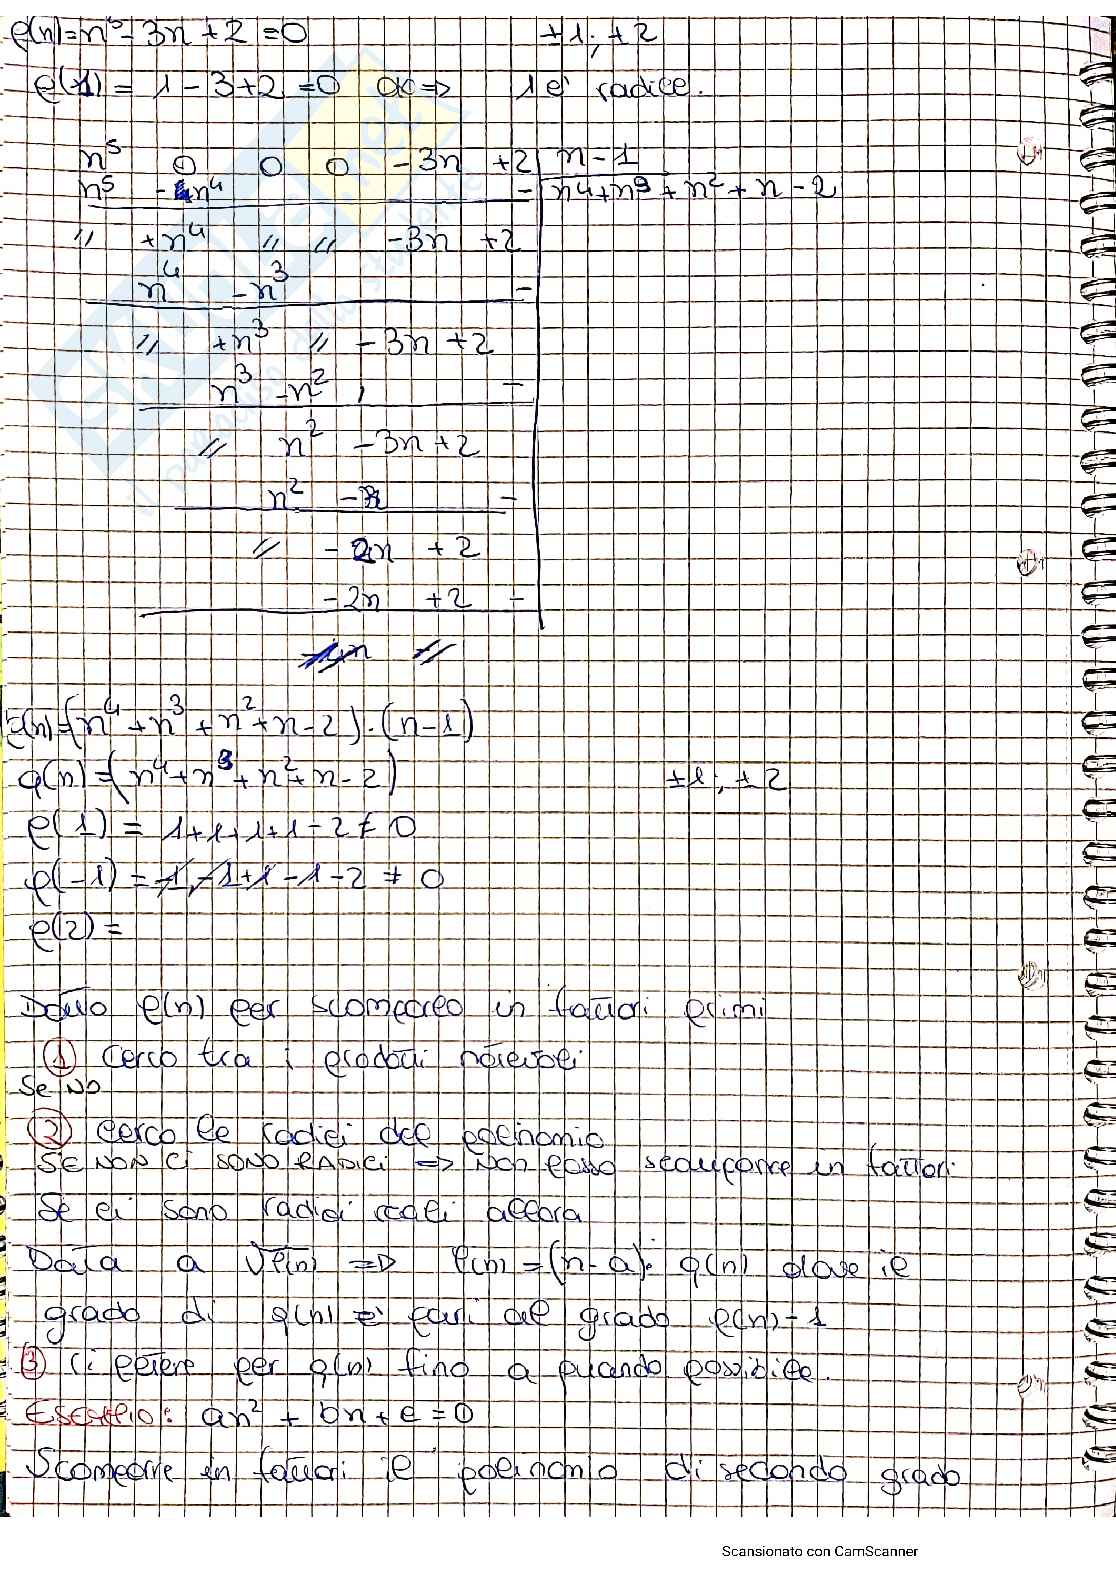 P(n)=n⁵-3n+2=0 ±1; ±2
P(1) = 1-3+2=0 OK ⇒ 1 è radice.
n⁵ 0 0 0 -3n +2 n-1
n⁵ -n⁴ - n⁴+n³+n²+n-2
// +n⁴ // // -3n +2
n⁴ -n³ -
// +n³ // -3n+2
n³ -n² -
// n² -3n+2
n² -n -
// -2n +2
-2n +2 -
// //
P(n)=(n⁴+n³+n²+n-2)·(n-1)
q(n)=(n⁴+n³+n²+n-2) ±1; ±2
P(1)= 1+1+1+1-2≠0
P(-1)= 1-1+1-1-2 ≠ 0
P(2)=
Dato P(n) per scomporlo in fattori primi
① Cerco tra i prodotti notevoli
Se NO
② Cerco le radici del polinomio
SE NON CI SONO RADICI ⇒ Non posso scomporre in fattori
Se ci sono radici reali allora
Data a √P(n) ⇒ P(n)=(n-a)·q(n) dove il
grado di q(n) è pari al grado P(n)-1
③ Ripetere per q(n) fino a quando possibile.
Esempio: an²+bn+c=0
Scomporre in fattori il polinomio di secondo grado
Scansionato con CamScanner